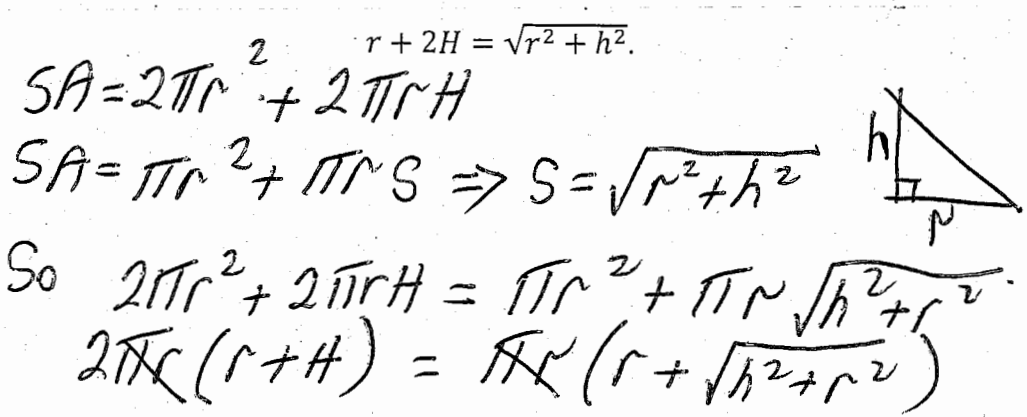 r + 2H = √(r² + h²).
SA = 2πr² + 2πrH
SA = πr² + πrS ⇒ S = √(r² + h²)
h
r
So 2πr² + 2πrH = πr² + πr√(h² + r²).
2πr(r + H) = πr(r + √(h² + r²))